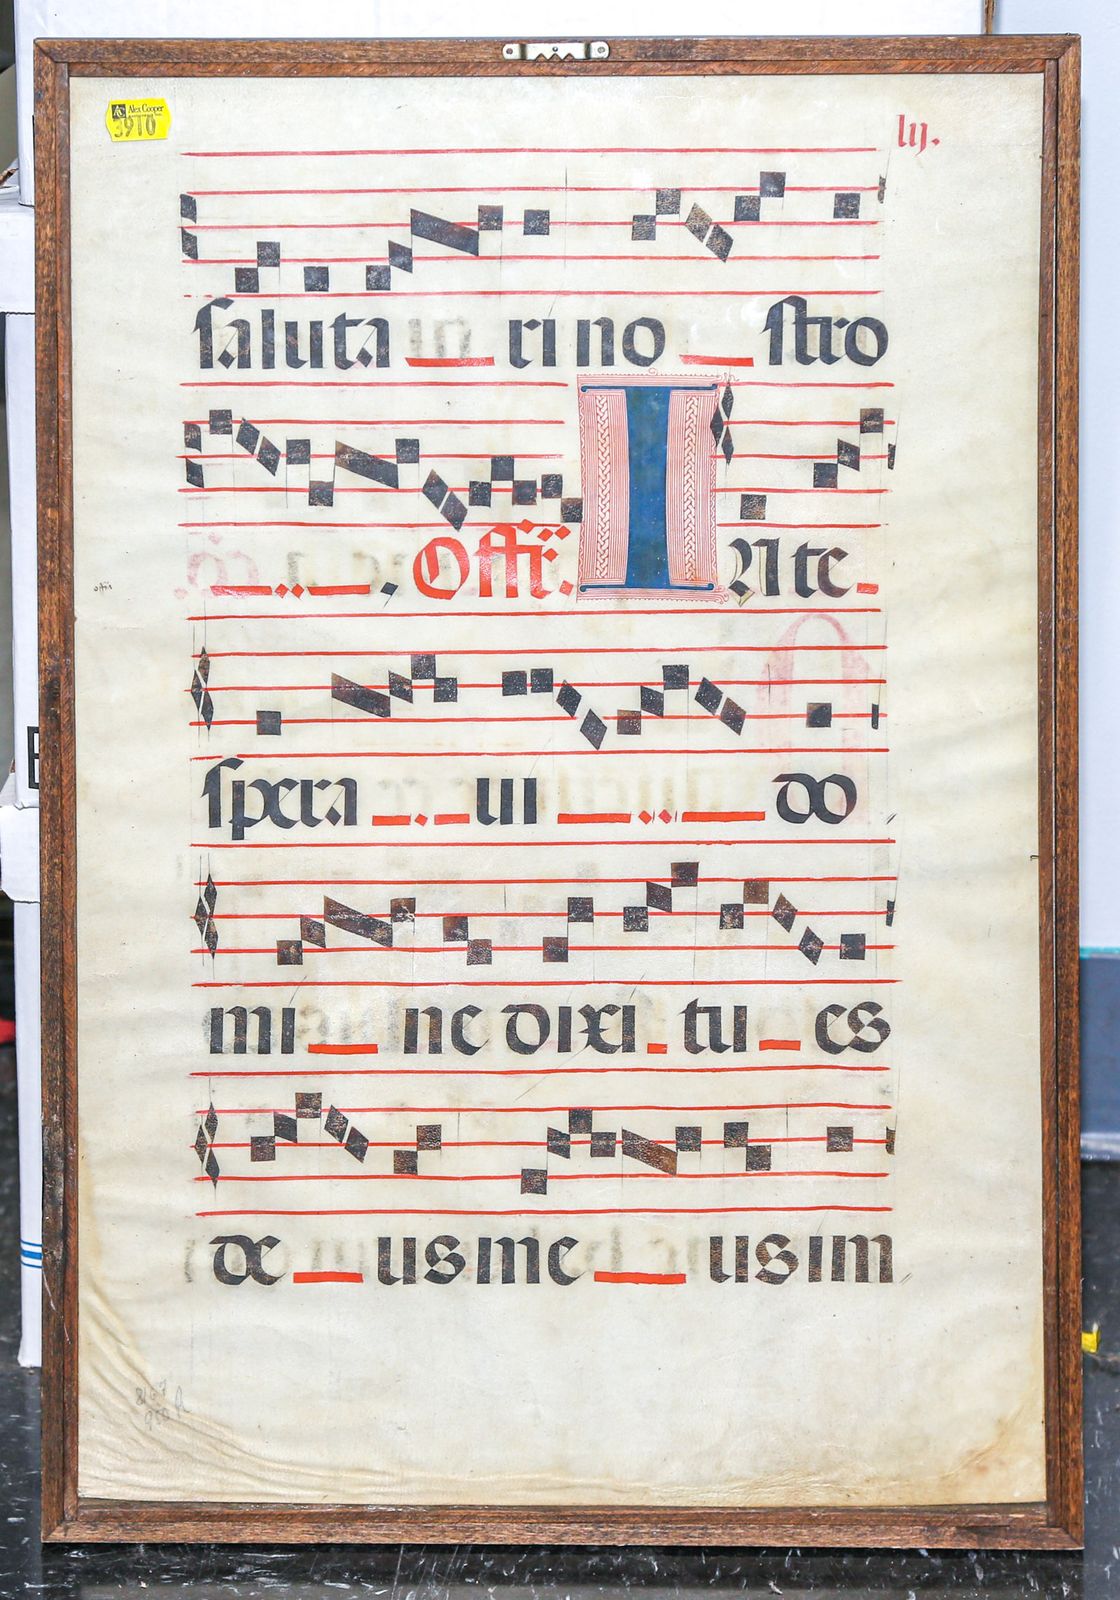 Alex Cooper
3910
lij.
saluta ri no stro
. Offr̃. IN te
spera ui do
mi ne dixi tu es
de us me us im